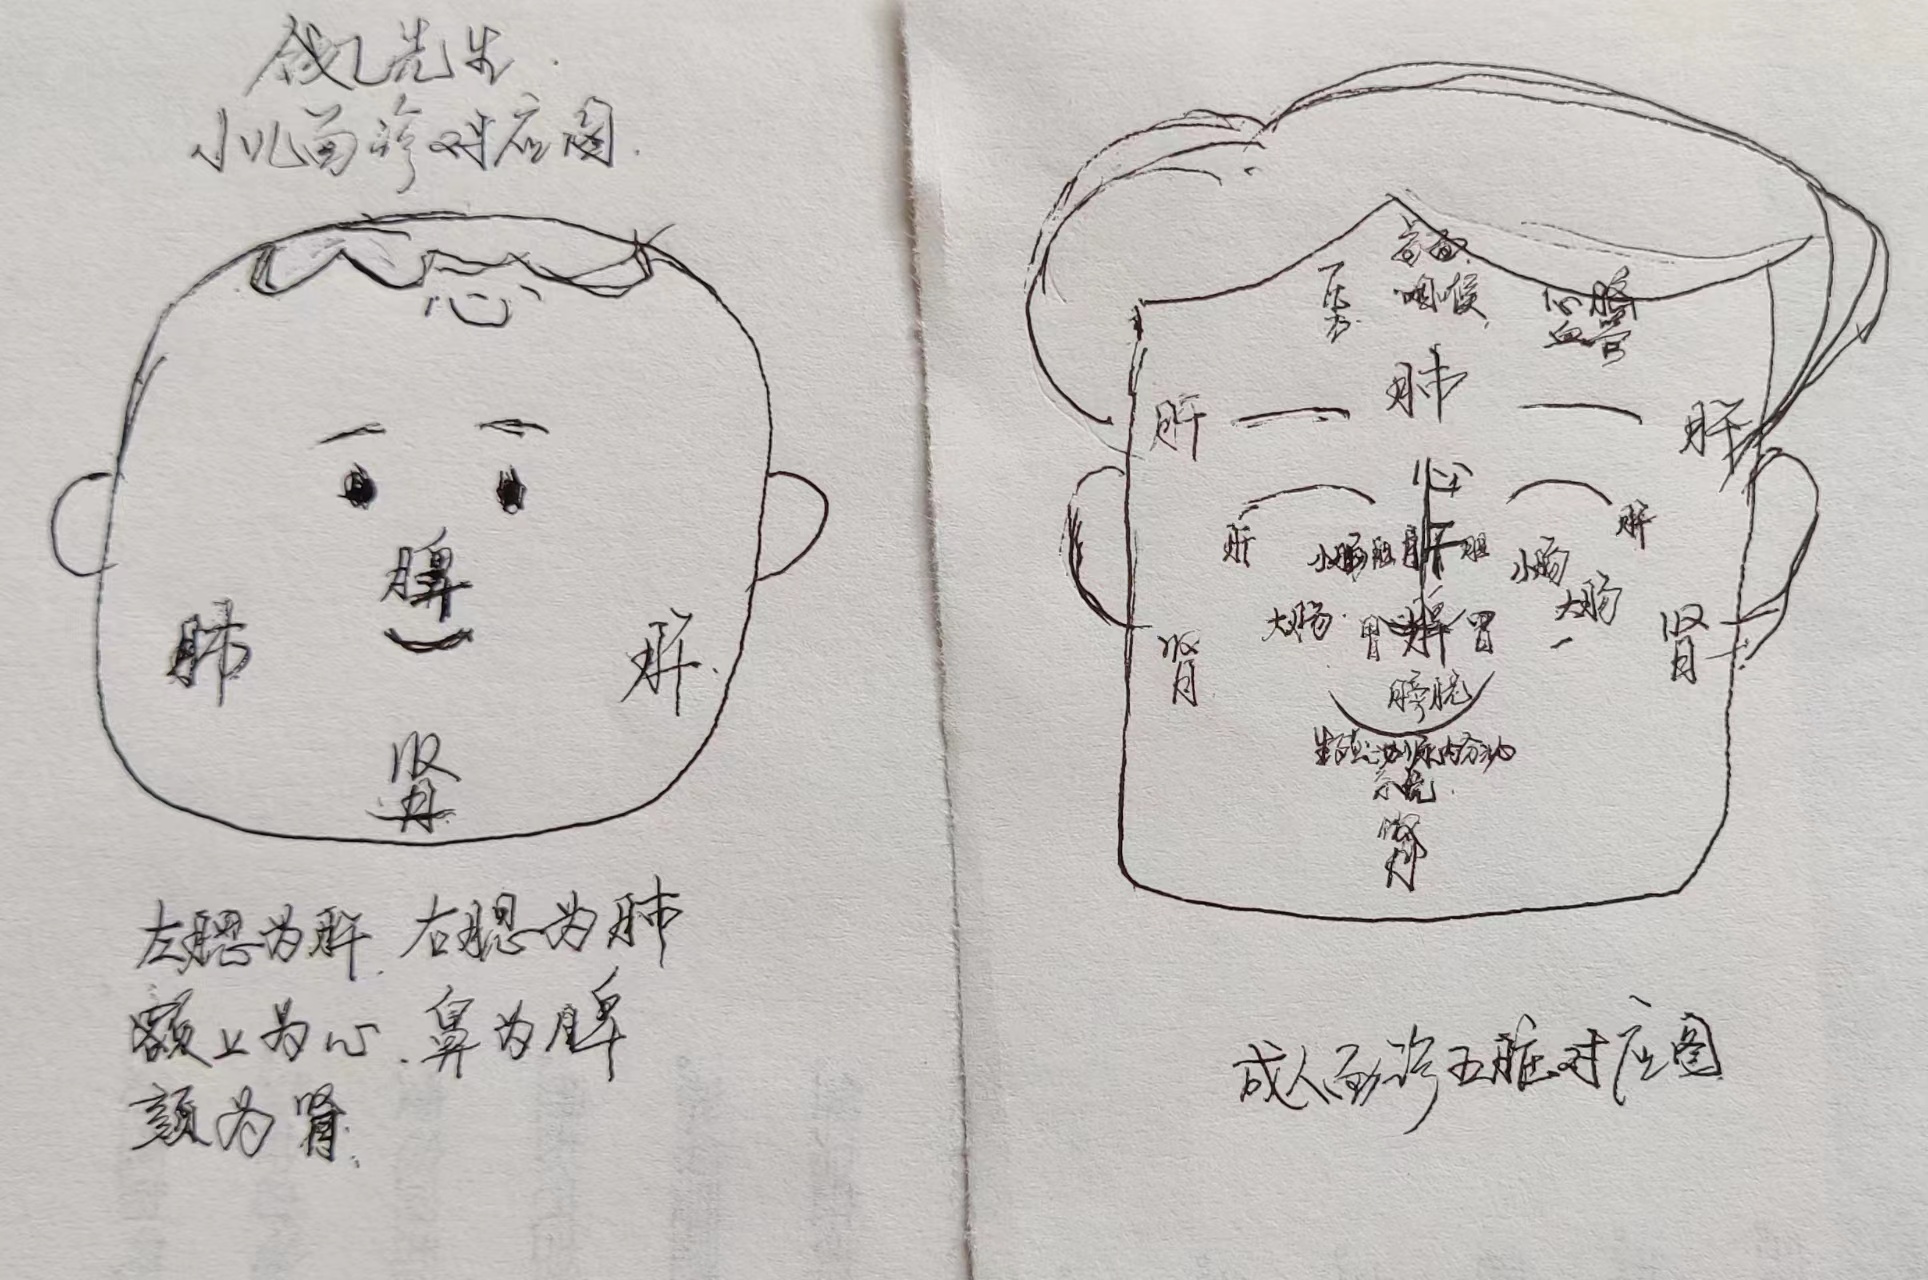 钱乙先生
小儿面诊对应图.
心
脾
肺
肝.
肾
左腮为肝.右腮为肺
额上为心.鼻为脾
颏为肾.
首面.
咽喉.
压力.
心脏
血管
肺
肝
肝
心
肝
小肠 胆 肝 胆 小肠
肝
大肠. 胃 脾 胃 大肠
肾
肾
膀胱
生殖泌尿内分泌
系统.
肾
成人面诊五脏对应图